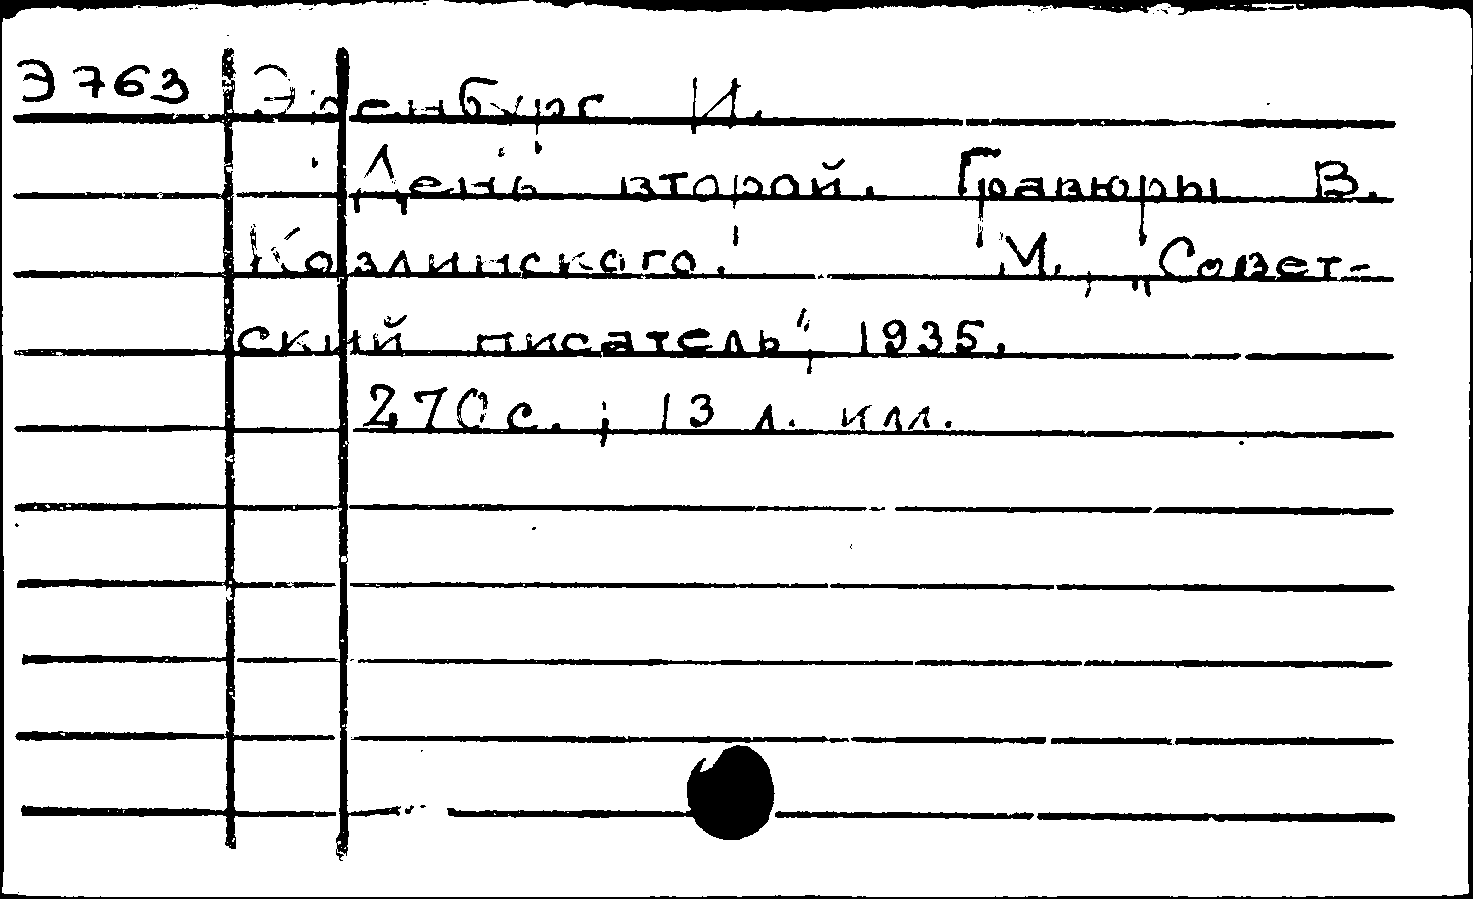 Э763 Эренбург И.
День второй. Гравюры В.
Козлинского. М., „Совет-
ский писатель“, 1935.
270с.; 13 л. илл.